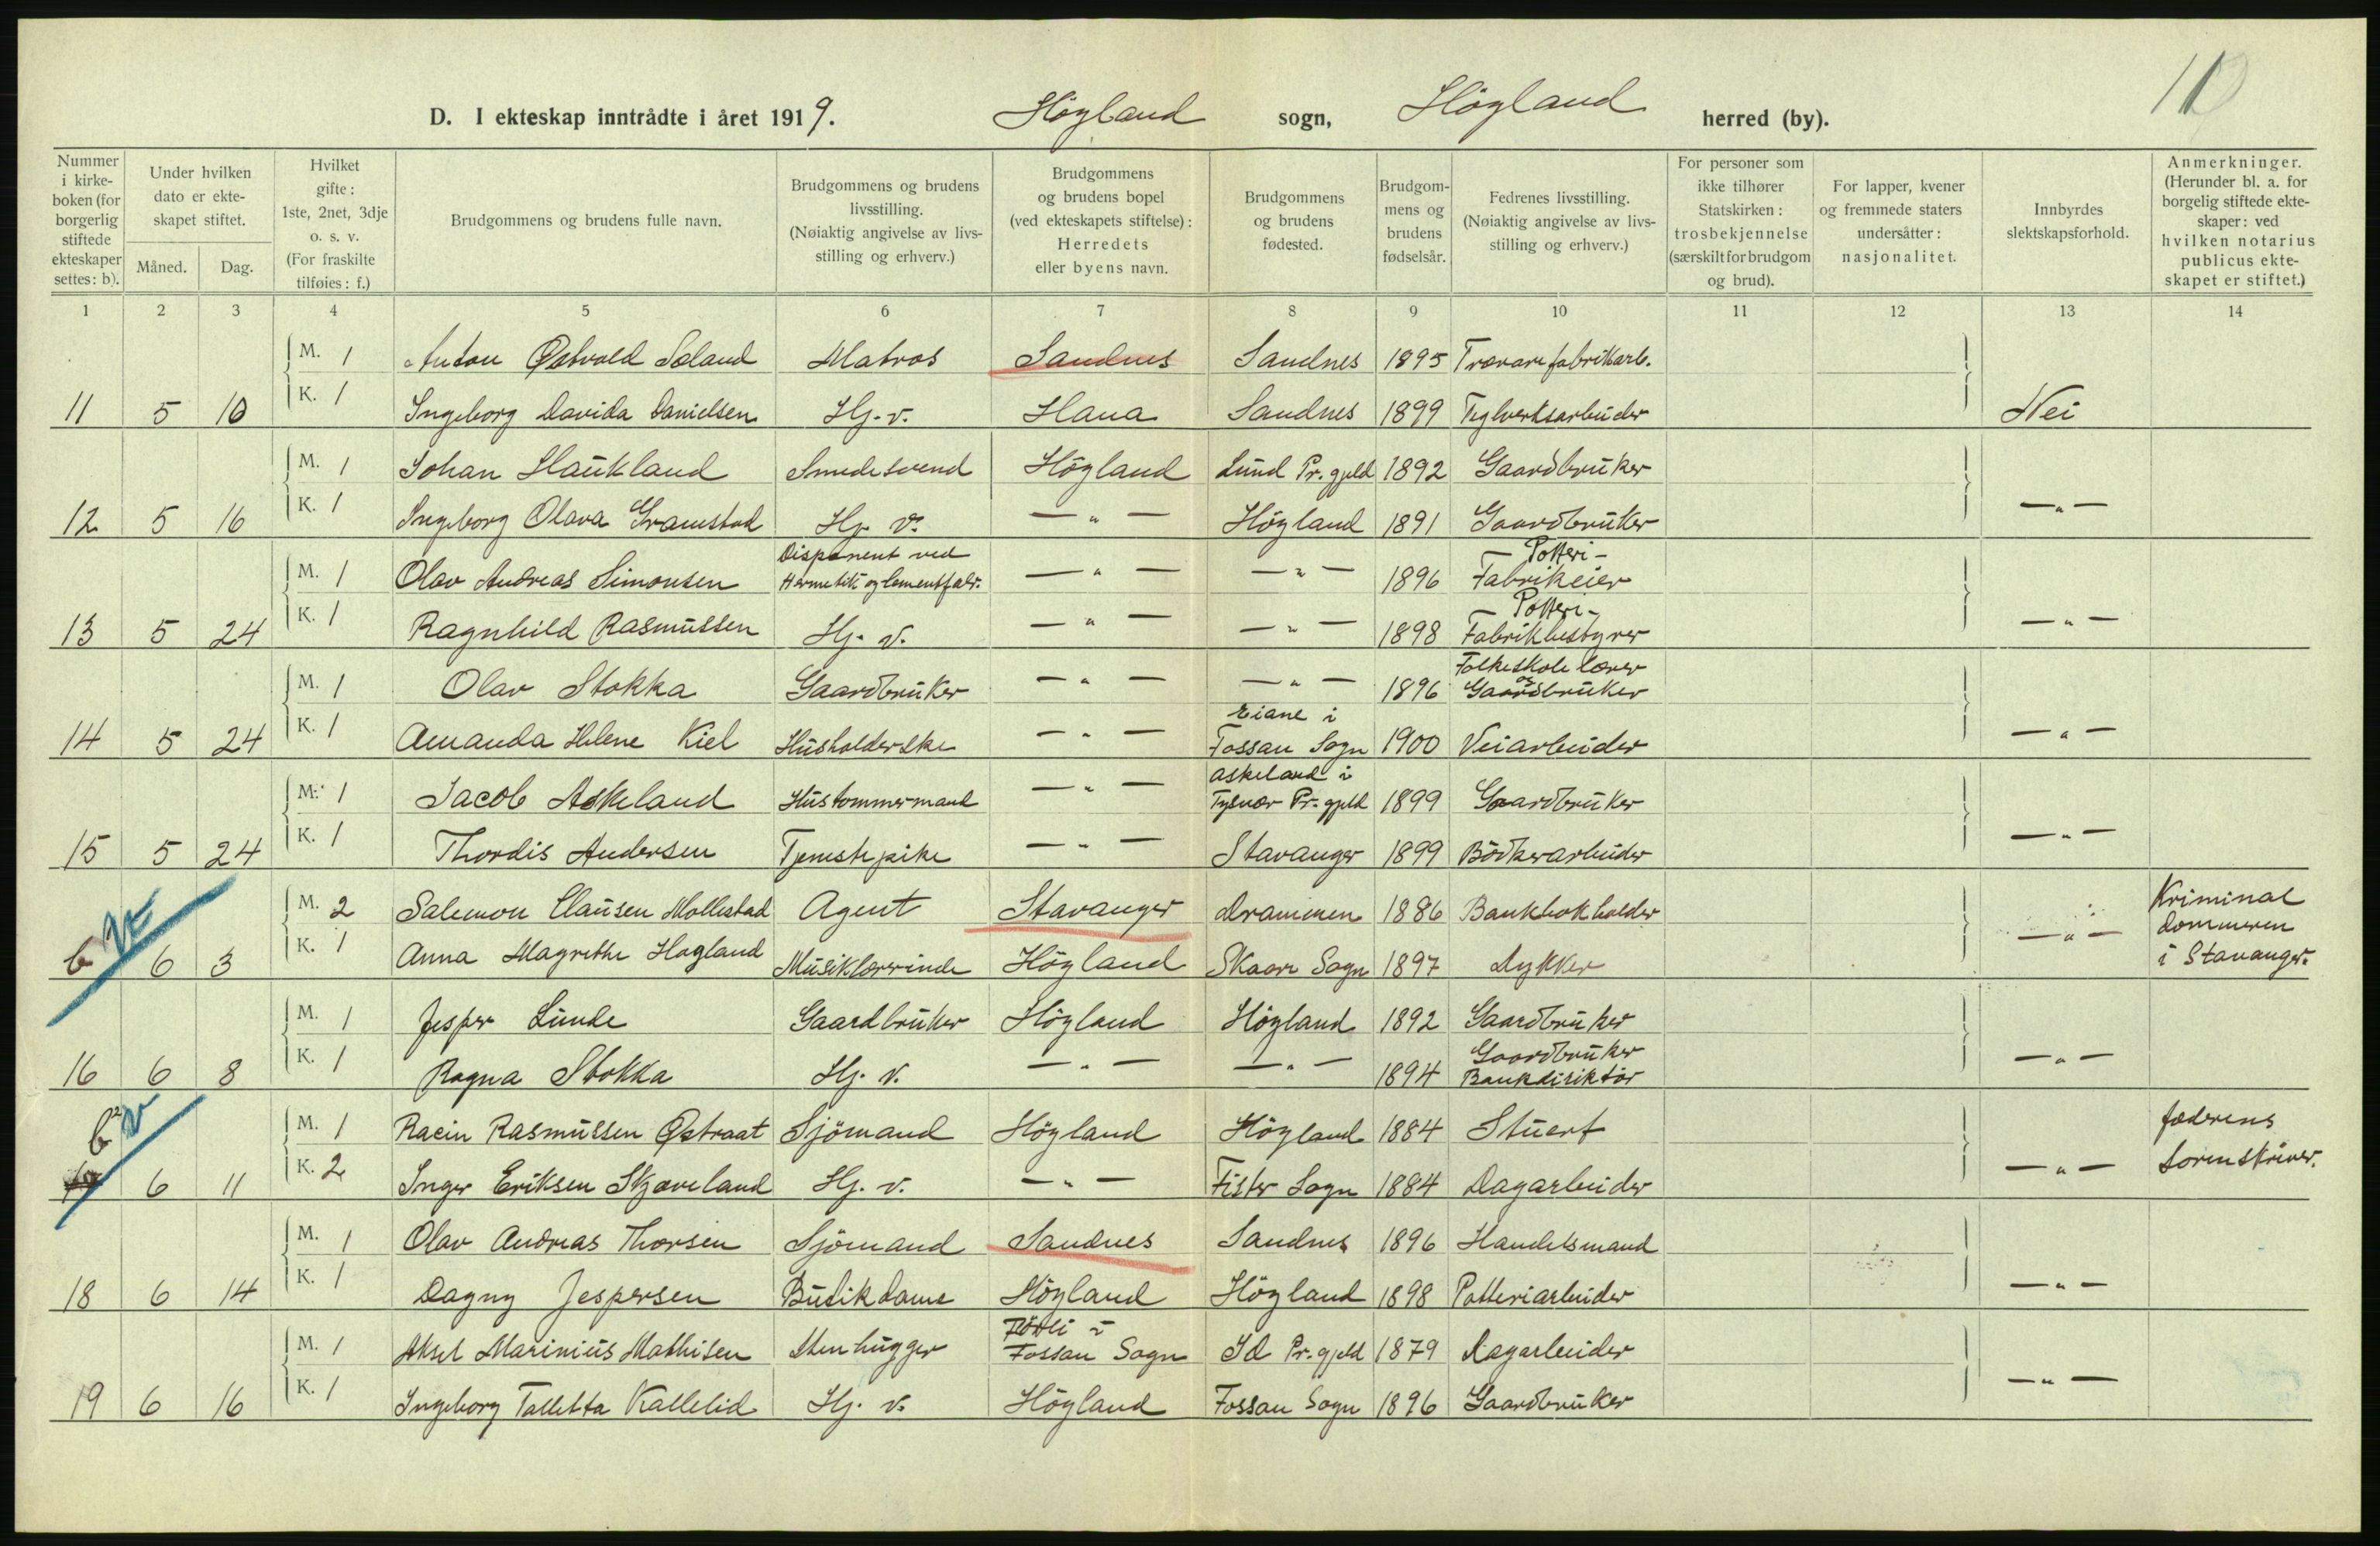 D. I ekteskap inntrådte i året 1919. Høgland sogn, Høgland herred (by).
Nummer i kirkeboken (for borgerlig stiftede ekteskaper settes: b).
Under hvilken dato er ekteskapet stiftet.
Måned.
Dag.
Hvilket gifte: 1ste, 2net, 3dje o. s. v. (For fraskilte tilføies: f.)
Brudgommens og brudens fulle navn.
Brudgommens og brudens livsstilling. (Nøiaktig angivelse av livsstilling og erhverv.)
Brudgommens og brudens bopel (ved ekteskapets stiftelse): Herredets eller byens navn.
Brudgommens og brudens fødested.
Brudgommens og brudens fødselsår.
Fedrenes livsstilling. (Nøiaktig angivelse av livsstilling og erhverv.)
For personer som ikke tilhører Statskirken: trosbekjennelse (særskilt for brudgom og brud).
For lapper, kvener og fremmede staters undersåtter: nasjonalitet.
Innbyrdes slektskapsforhold.
Anmerkninger. (Herunder bl. a. for borgelig stiftede ekteskaper: ved hvilken notarius publicus ekteskapet er stiftet.)
1 2 3 4 5 6 7 8 9 10 11 12 13 14
M. 1 Anton Østvold Soland Matros Sandnes Sandnes 1895 Trævarefabrikarb.
11 5 10 K. 1 Ingeborg Davida Danielsen Hj. v. Hana Sandnes 1899 Teglverksarbeider Nei
M. 1 Johan Haukland Smedesvend Høgland Lund Pr.gjeld 1892 Gaardbruker
12 5 16 K. 1 Ingeborg Olava Gramstad Hj. v. — " — Høgland 1891 Gaardbruker — " —
M. 1 Olav Andreas Simonsen Disponent ved Hermetik og Cementfabr. — " — — " — 1896 Potteri- Fabrikeier
13 5 24 K. 1 Ragnhild Rasmussen Hj. v. — " — — " — 1898 Potteri- Fabrikbestyrer — " —
M. 1 Olav Stokka Gaardbruker — " — — " — 1896 Folkeskolelærer og Gaardbruker
14 5 24 K. 1 Amanda Helene Kiel Husholderske — " — Eiane i Fossan Sogn 1900 Veiarbeider — " —
M. 1 Jacob Askeland Hustommermand — " — Askeland i Tysvær Pr.gjeld 1899 Gaardbruker
15 5 24 K. 1 Thordis Andersen Tjenestepike — " — Stavanger 1899 Bødkerarbeider — " —
M. 2 Salemon Clausen Mollestad Agent Stavanger Drammen 1886 Bankbokholder Kriminal dommeren i Stavanger.
b 6 3 K. 1 Anna Magrethe Hogland Musiklærrinde Høgland Skaare Sogn 1897 Dykker — " —
M. 1 Jesper Lunde Gaardbruker Høgland Høgland 1892 Gaardbruker
16 6 8 K. 1 Ragna Stokka Hj. v. — " — — " — 1894 Gaardbruker Bankdirektør — " —
M. 1 Racin Rasmussen Østraat Sjømand Høgland Høgland 1884 Stuert Jæderens Sorenskriver.
b 6 11 K. 2 Inger Eriksen Skjæveland Hj. v. — " — Fister Sogn 1884 Dagarbeider — " —
M. 1 Olav Andreas Thorsen Sjømand Sandnes Sandnes 1896 Handelsmand
18 6 14 K. 1 Dagny Jespersen Butikdame Høgland Høgland 1898 Potteriarbeider — " —
M. 1 Aksel Marinius Mathisen Stenhugger i Fossan Sogn Id Pr.gjeld 1879 Dagarbeider
19 6 16 K. 1 Ingeborg Talletta Kallelid Hj. v. Høgland Fossan Sogn 1896 Gaardbruker — " —